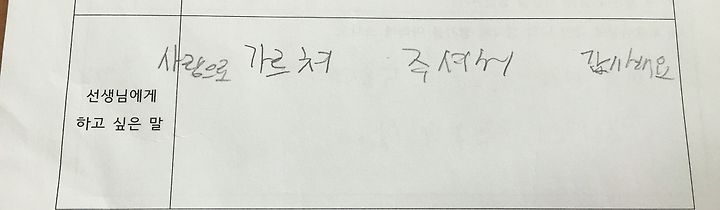 선생님에게
하고 싶은 말
사랑으로 가르쳐 주셔서 감사해요